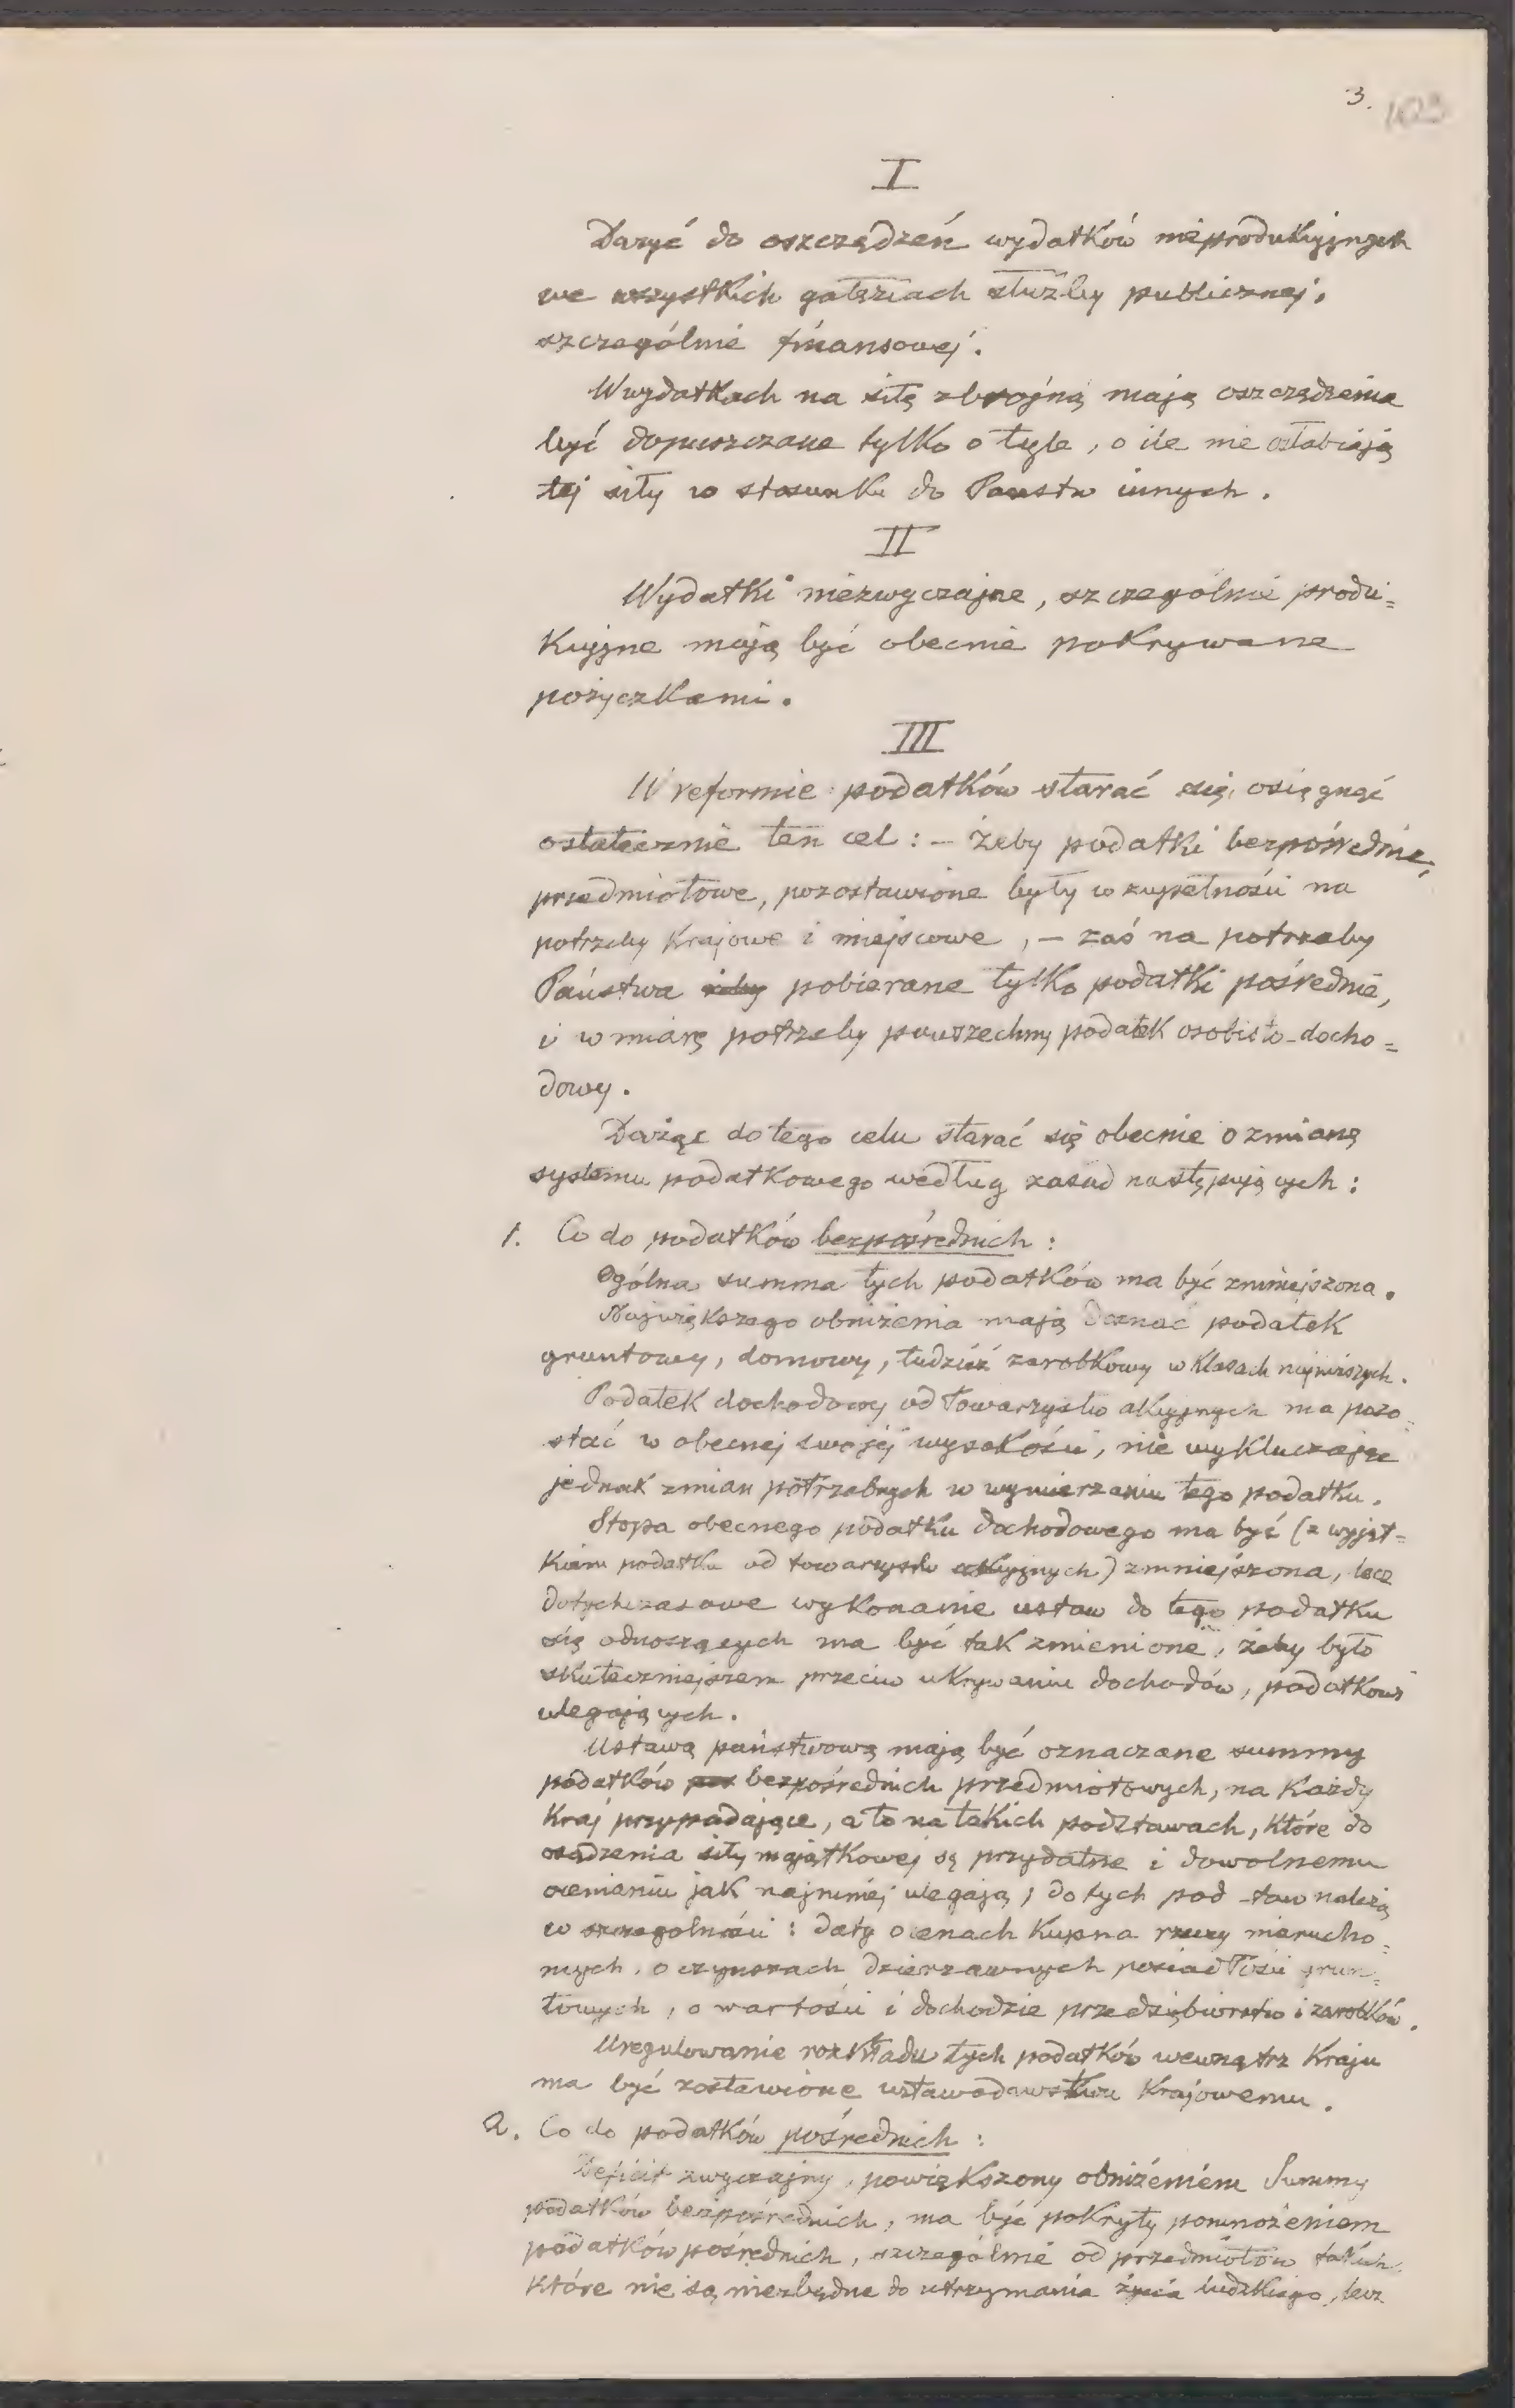 3.
103
I
Dążyć do oszczędzeń wydatków nieprodukcyjnych
we wszystkich gałęziach służby publicznej,
szczególnie finansowej.
W wydatkach na siłę zbrojną mają oszczędzenia
być dopuszczane tylko o tyle, o ile nie osłabiają
tej siły w stosunku do Państw innych.
II
Wydatki niezwyczajne, szczególnie produ=
kcyjne mają być obecnie pokrywane
pożyczkami.
III
W reformie podatków starać się osięgnąć
ostatecznie ten cel: – żeby podatki bezpośrednie,
przedmiotowe, pozostawione były w zupełności na
potrzeby krajowe i miejscowe, – zaś na potrzeby
Państwa żeby pobierane tylko podatki pośrednie,
i w miarę potrzeby powszechny podatek osobisto-docho=
dowy.
Dążąc do tego celu starać się obecnie o zmianę
systemu podatkowego według zasad następujących:
1. Co do podatków bezpośrednich:
Ogólna summa tych podatków ma być zmniejszona.
Największego obniżenia mają doznać podatek
gruntowy, domowy, tudzież zarobkowy w klasach najniższych.
Podatek dochodowy od Towarzystw akcyjnych ma pozo=
stać w obecnej swojej wysokości, nie wykluczając
jednak zmian potrzebnych w wymierzaniu tego podatku.
Stopa obecnego podatku dochodowego ma być (z wyjąt=
kiem podatku od towarzystw akcyjnych) zmniejszona, lecz
dotychczasowe wykonanie ustaw do tego podatku
się odnoszących ma być tak zmienione, żeby było
skuteczniejszem przeciw ukrywaniu dochodów, podatkowi
ulegających.
Ustawą państwową mają być oznaczane summy
podatków pos bezpośrednich przedmiotowych, na każdy
kraj przypadające, a to na takich podstawach, które do
osądzenia siły majątkowej są przydatne i dowolnemu
ocenianiu jak najmniej ulegają; do tych pod-taw należą
w szczególności: daty o cenach kupna rzeczy nierucho=
mych, o czynszach dzierżawnych posiadłości grun=
towych, o wartości i dochodzie przedsiębiorstw i zarobków.
Uregulowanie rozkładu tych podatków wewnątrz Kraju
ma być zostawione ustawodawstwu Krajowemu.
2. Co do podatków pośrednich:
Deficit zwyczajny, powiększony obniżeniem Summy
podatków bezpośrednich, ma być pokryty pomnożeniem
podatków pośrednich, szczególnie od przedmiotów takich,
które nie są niezbędne do utrzymania życia ludzkiego, lecz